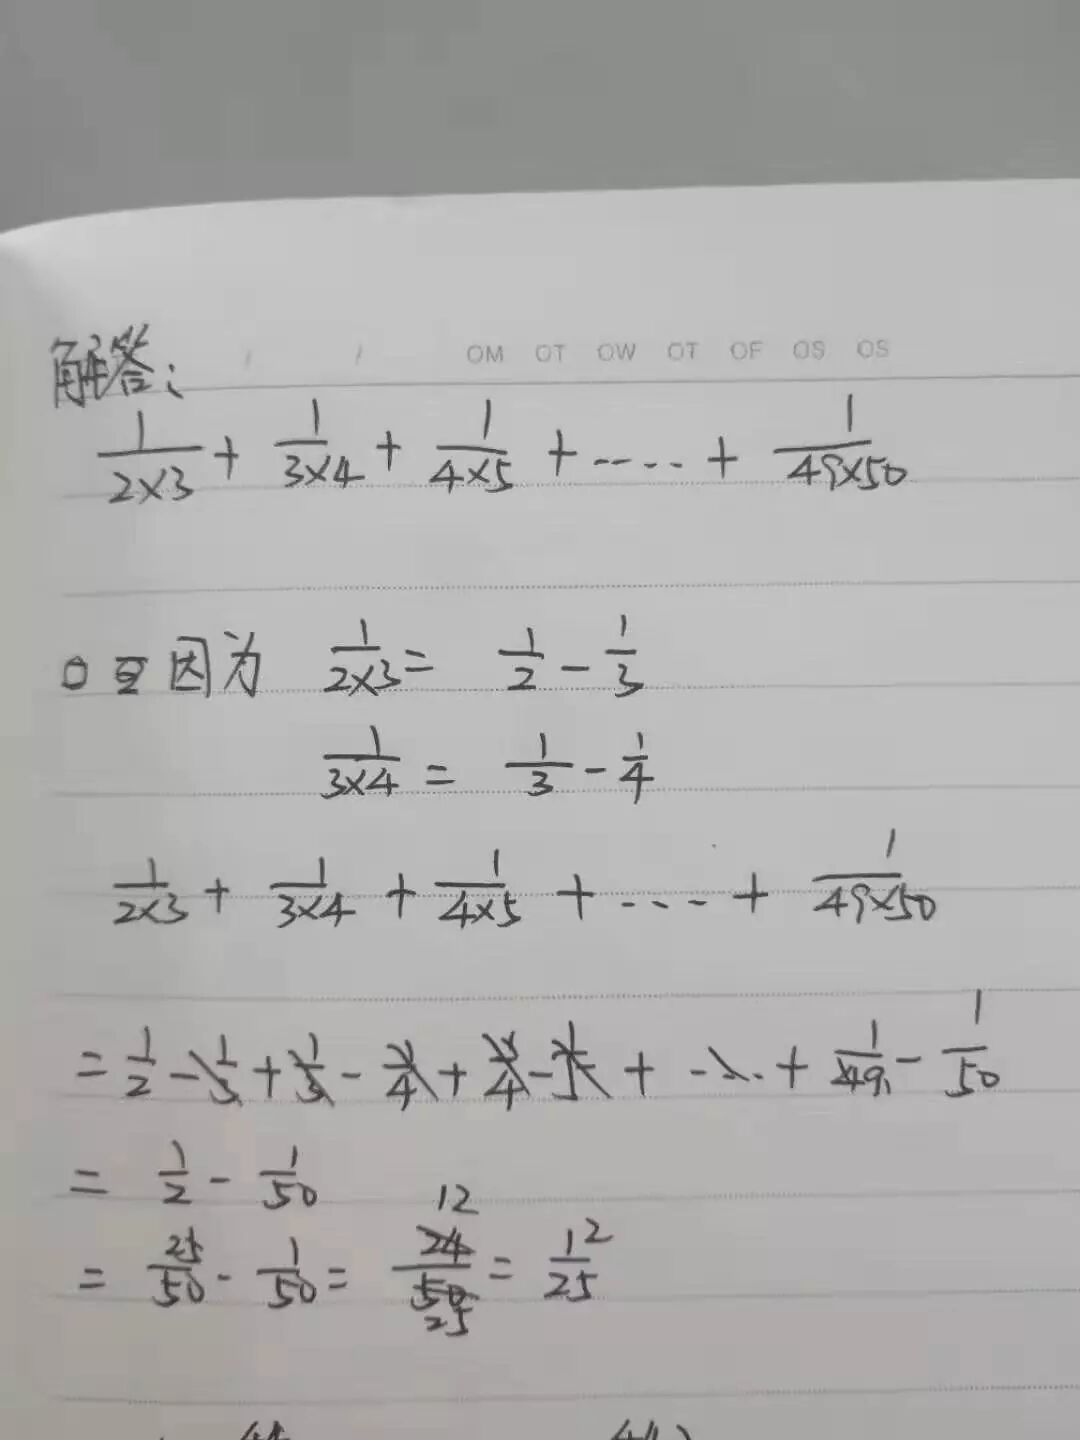 OM OT OW OT OF OS OS
解答：
1/(2×3) + 1/(3×4) + 1/(4×5) + ····· + 1/(49×50)
因为 1/(2×3) = 1/2 - 1/3
1/(3×4) = 1/3 - 1/4
1/(2×3) + 1/(3×4) + 1/(4×5) + ···· + 1/(49×50)
= 1/2 - 1/3 + 1/3 - 1/4 + 1/4 - 1/5 + ···· + 1/49 - 1/50
= 1/2 - 1/50
= 25/50 - 1/50 = 24/50 12 25 = 12/25